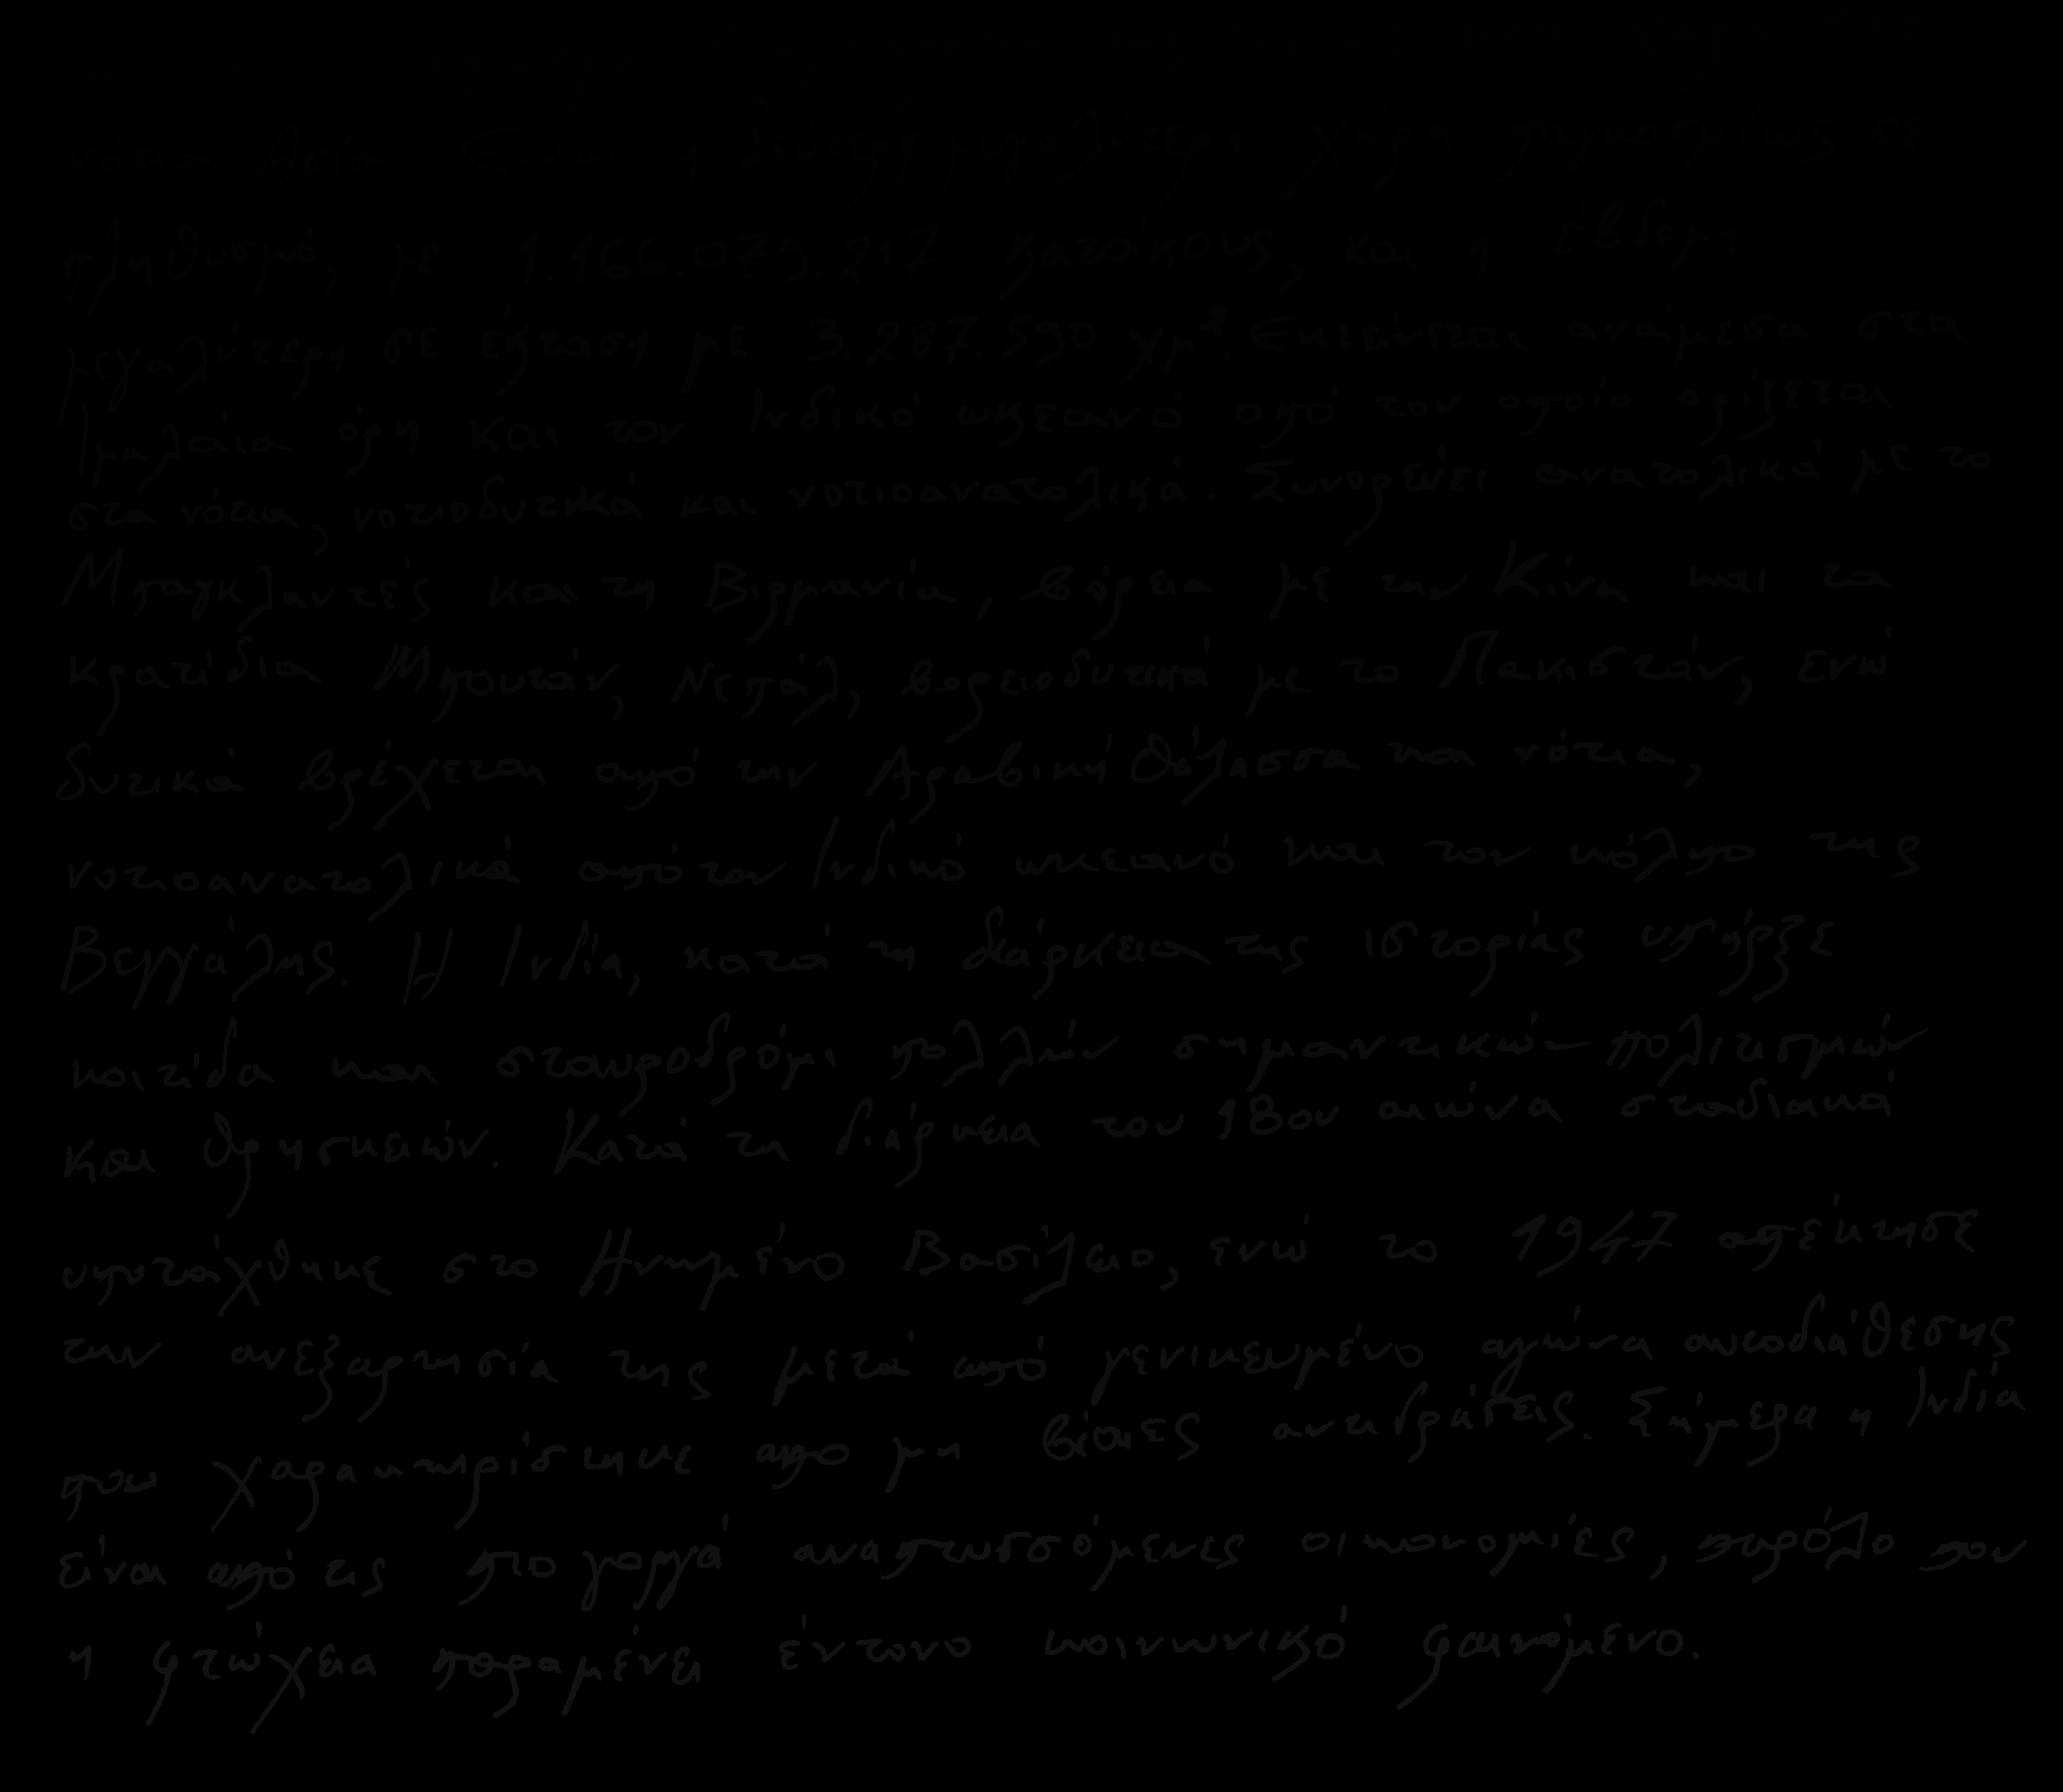 Η Ινδία ή επίσημα Δημοκρατία της Ινδίας είναι χώρα στη
νότια Ασία. Είναι η δεύτερη μεγαλύτερη χώρα παγκοσμίως σε
πληθυσμό, με 1.166.079.217 κατοίκους, και η έβδομη
μεγαλύτερη σε έκταση με 3.287.590 χμ². Εκτείνεται ανάμεσα στα
Ιμαλάια όρη και τον Ινδικό ωκεανό από τον οποίο ορίζεται
στα νότια, νοτιοδυτικά και νοτιοανατολικά. Συνορεύει ανατολικά με το
Μπαγκλαντές και τη Βιρμανία, βόρεια με την Κίνα και τα
κρατίδια Μπουτάν, Νεπάλ, βορειοδυτικά με το Πακιστάν, ενώ
δυτικά βρέχεται από την Αραβική Θάλασσα και νότια,
νοτιοανατολικά από τον Ινδικό ωκεανό και τον κόλπο της
Βεγγάλης. Η Ινδία, κατά τη διάρκεια της ιστορίας υπήρξε
κοιτίδα και σταυροδρόμι πολλών σημαντικών πολιτισμών
και θρησκειών. Κατά τη διάρκεια του 18ου αιώνα σταδιακά
υποτάχθηκε στο Ηνωμένο Βασίλειο, ενώ το 1947 απέκτησε
την ανεξαρτησία της μετά από γενικευμένο αγώνα αυτοδιάθεσης
που χαρακτηρίστηκε απο μη βίαιες αντιδράσεις. Σήμερα η Ινδία
είναι από τις πιο γοργά αναπτυσσόμενες οικονομίες, παρόλο που
η φτώχεια παραμένει έντονο κοινωνικό φαινόμενο.